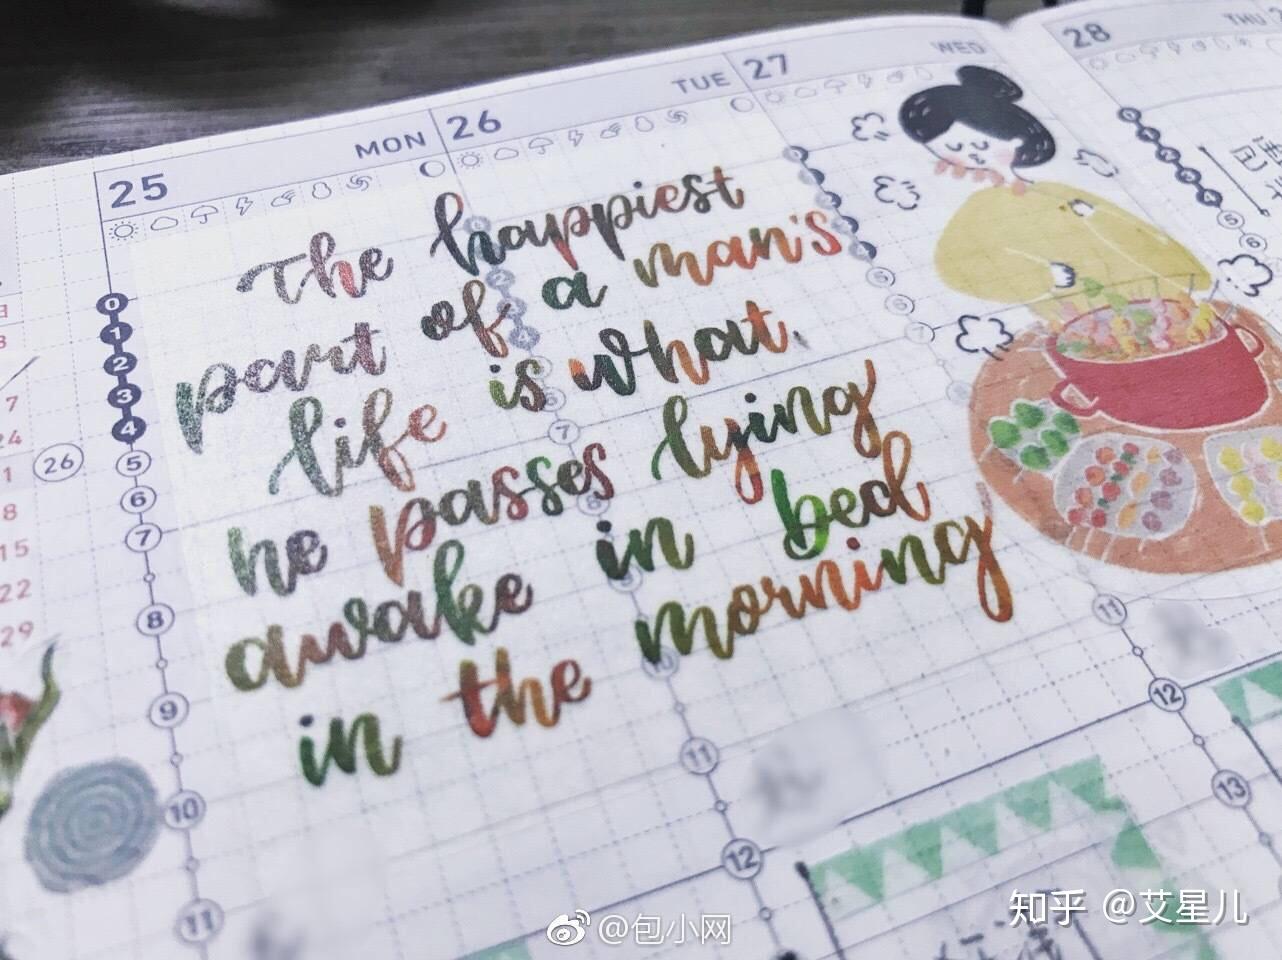 25 MON
26 TUE
27 WED
28 THU
The happiest
part of a man's
life is what
he passes lying
awake in bed
in the morning
0
1
2
3
4
5
6
7
8
9
10
11
5
6
7
7
11
12
11
12
13
5
6
26
7
24
1
8
15
22
29
@包小网
知乎 @艾星儿